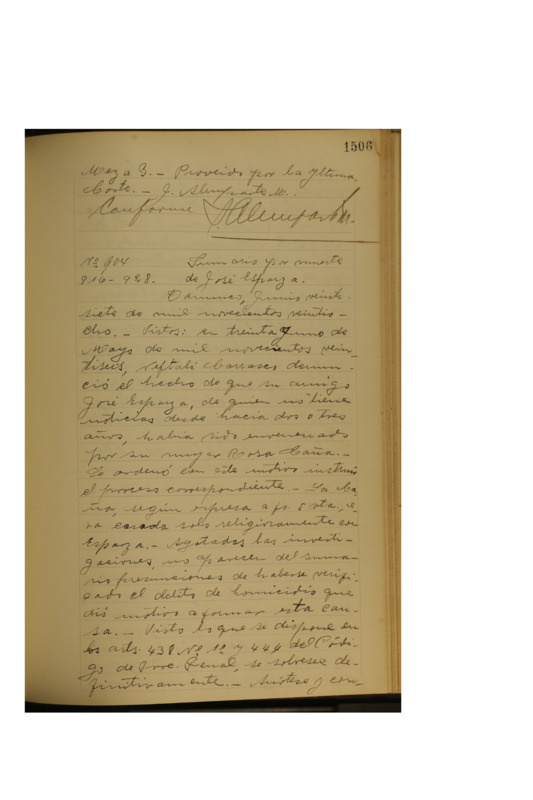 1506
Meza B. — Proveido por la Iltma.
Corte. — J. Alemparte M.
Conforme J. Alemparte M.
Nº 904 Sumario por muerte
916-928. de José Esparza.
Osorno, Junio veinti-
siete de mil novecientos veintio-
cho. — Vistos: en treinta y uno de
Mayo de mil novecientos vein-
tiseis, Neftali Carrasco denun-
ció el hecho de que su amigo
José Esparza, de quien no tiene
noticias desde hacia dos o tres
años, habia sido envenenado
por su mujer Rosa Caña. —
Se ordenó con este motivo instruir
el proceso correspondiente. — La Ca-
ña, según expresa a fs. 5 vta, e-
ra casada solo religiosamente con
Esparza. — Agotadas las investi-
gaciones, no aparecen del suma-
rio presunciones de haberse verifi-
cado el delito de homicidio que
dió motivo a formar esta cau-
sa. — Visto lo que se dispone en
los arts. 438 Nº 1º y 449 del Códi-
go de Proc. Penal, se sobresee de-
finitivamente. — Anótese y con-